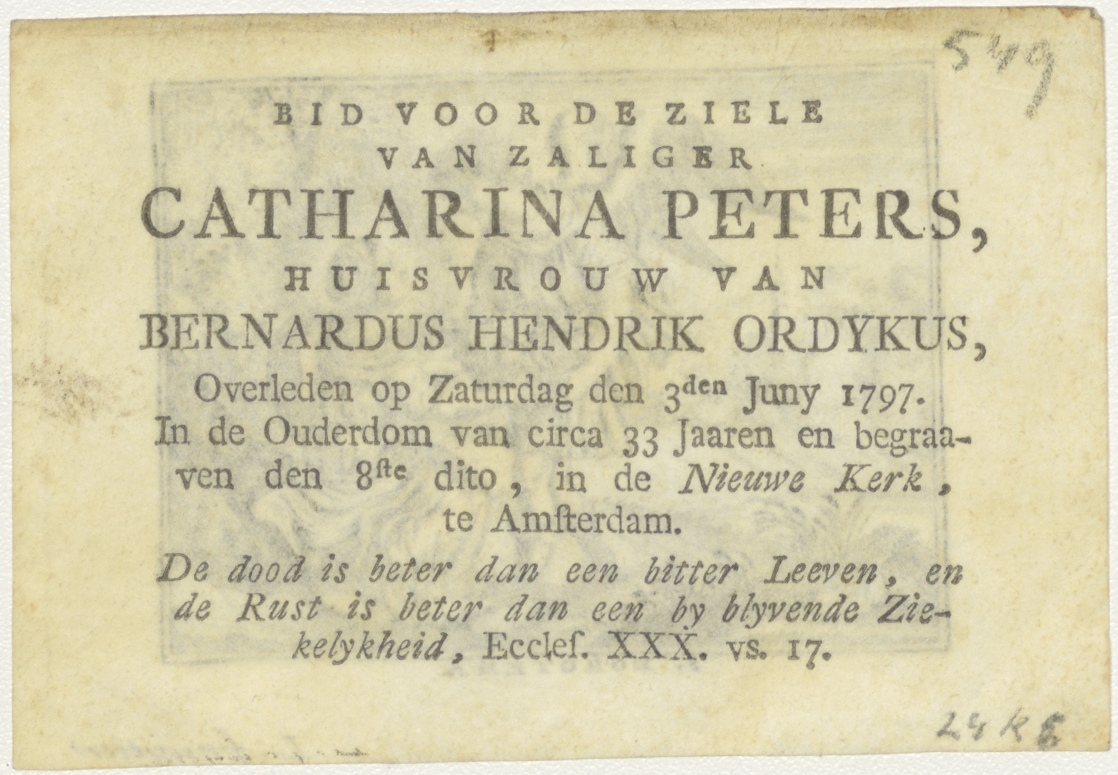 549
BID VOOR DE ZIELE
VAN ZALIGER
CATHARINA PETERS,
HUISVROUW VAN
BERNARDUS HENDRIK ORDYKUS,
Overleden op Zaturdag den 3den Juny 1797.
In de Ouderdom van circa 33 Jaaren en begraa-
ven den 8ſte dito, in de Nieuwe Kerk,
te Amſterdam.
De dood is beter dan een bitter Leeven, en
de Rust is beter dan een by blyvende Zie-
kelykheid, Eccleſ. XXX. vs. 17.